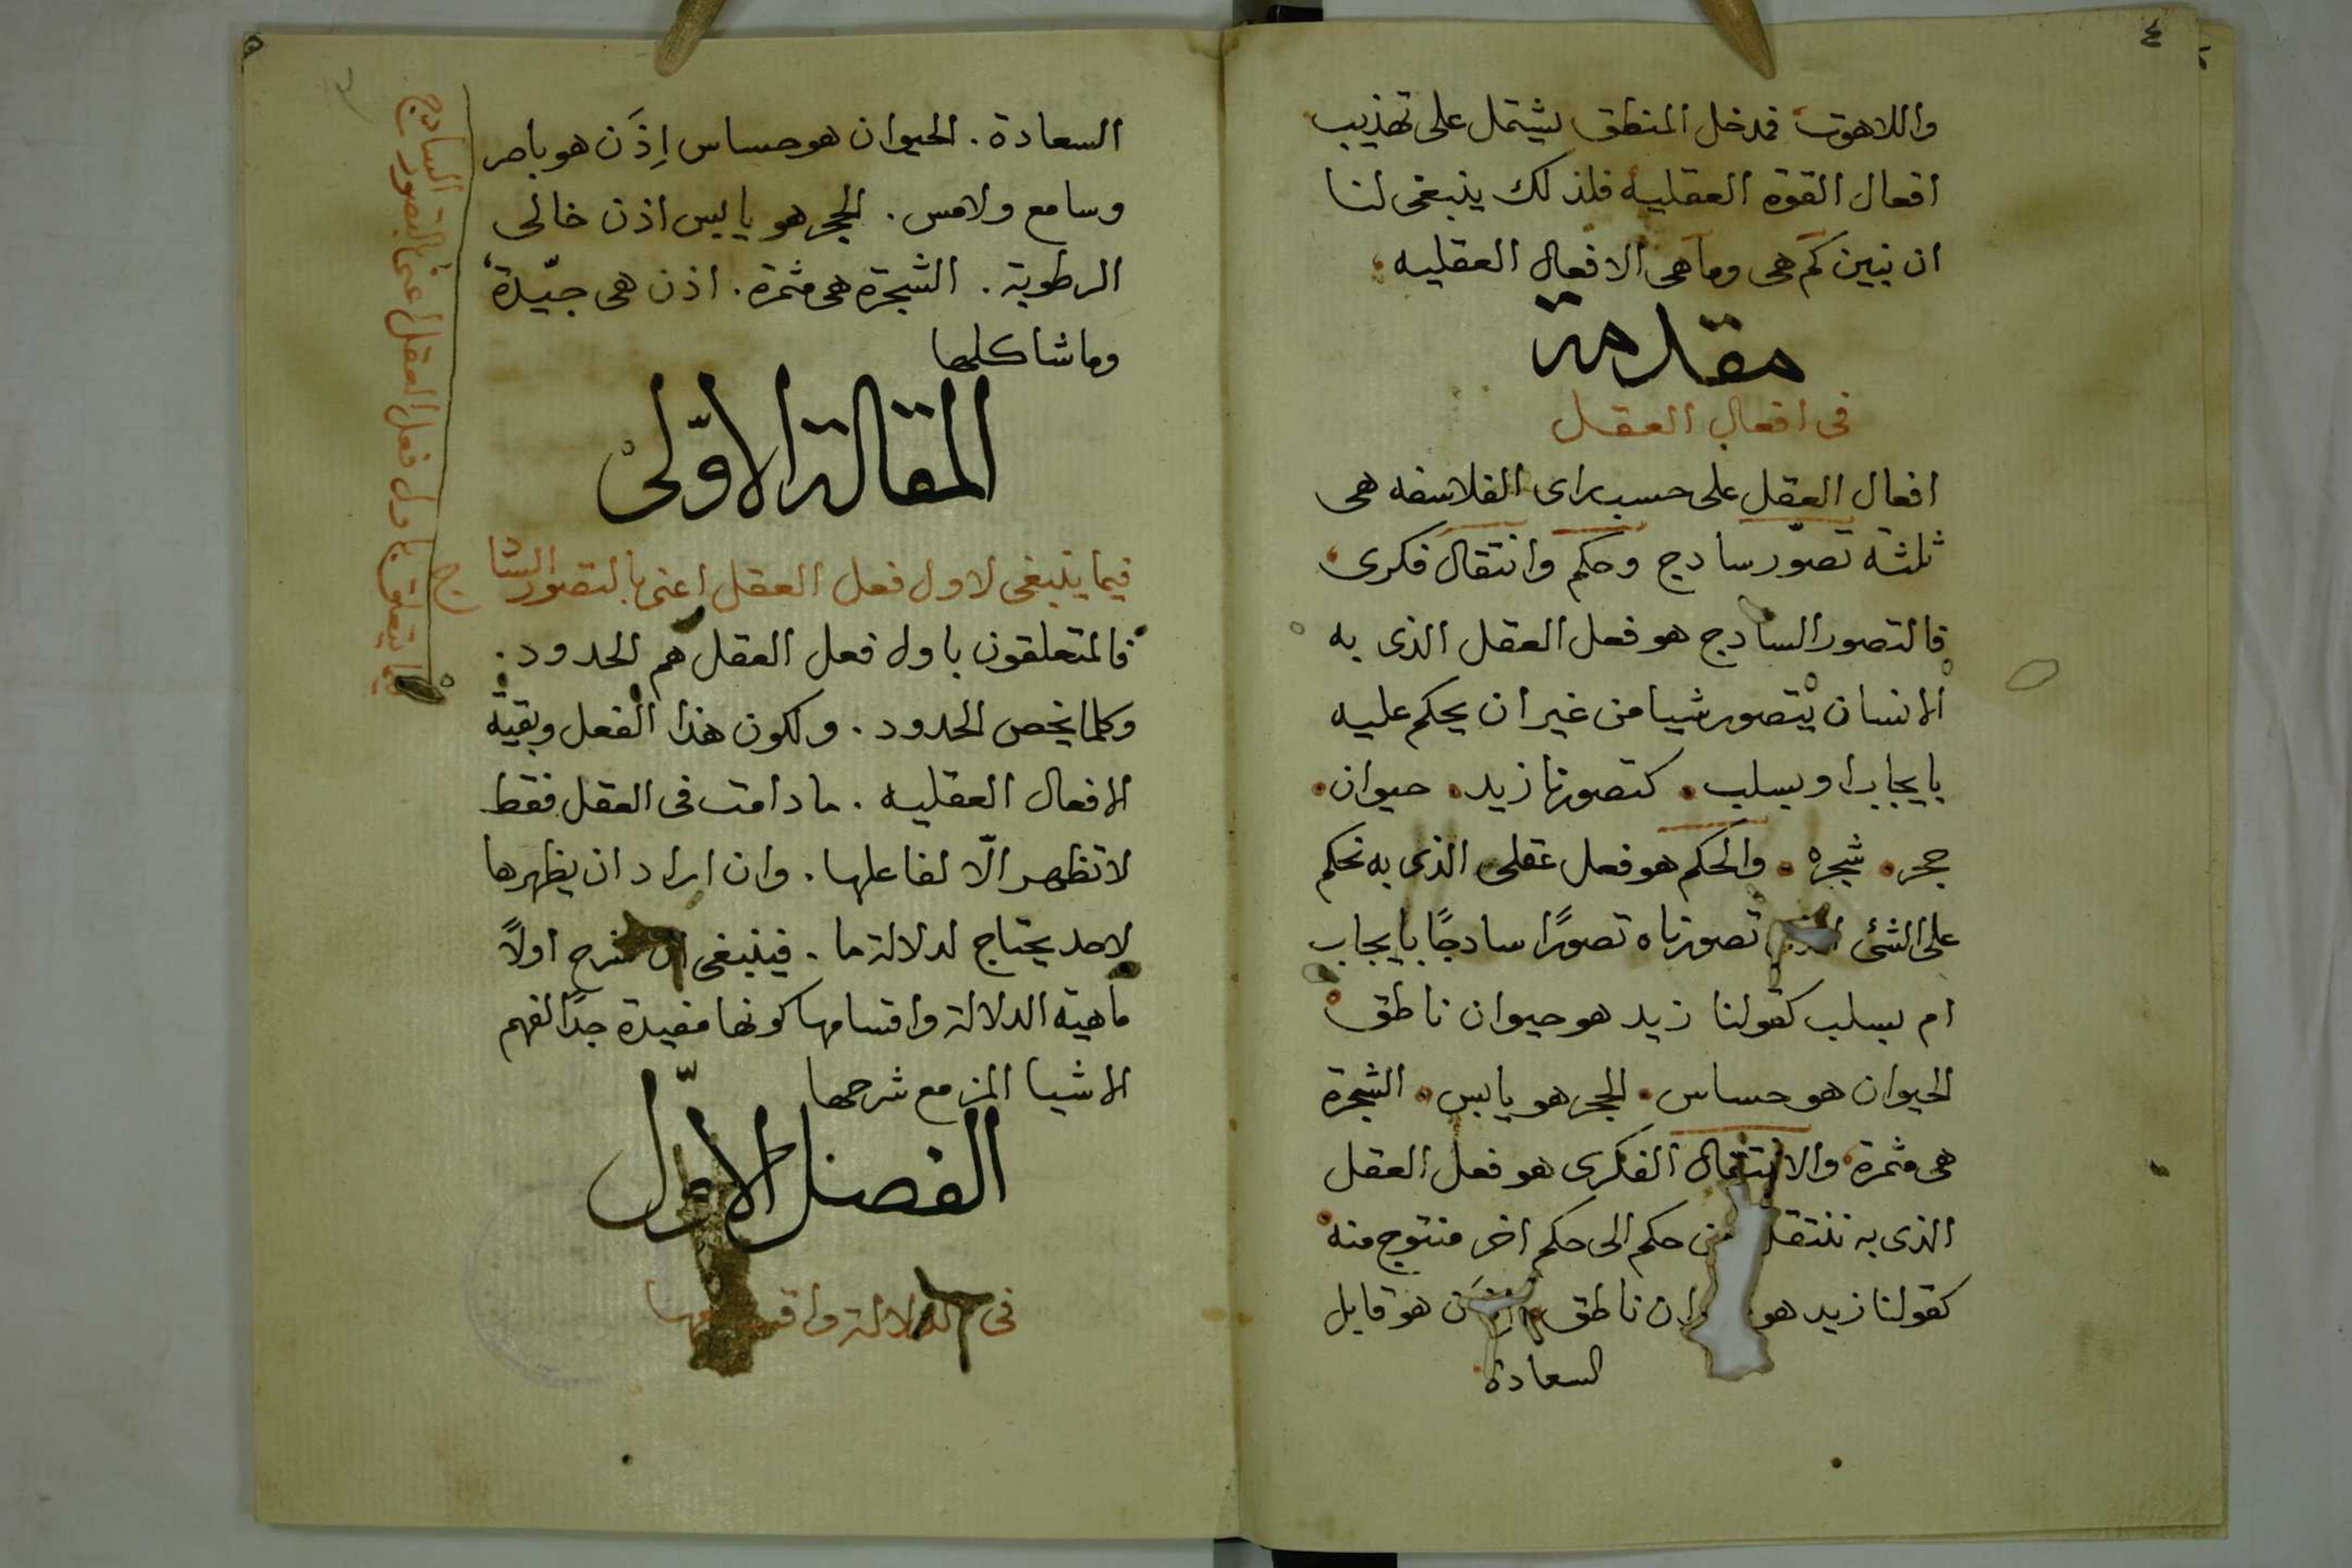 ٤
واللاهوت فمدخل المنطق يشتمل على تهذيب
افعال القوة العقليه فلذلك ينبغى لنا
ان نبين كم هى وما هى الافعال العقليه
مقدمة
فى افعال العقل
افعال العقل على حسب راى الفلاسفه هى
ثلثة تصوّر سادج وحكم وانتقال فكرى
فالتصور السادج هو فعل العقل الذى به
الانسان يتصور شيا من غير ان يحكم عليه
بايجاب او بسلب. كتصورنا زيد. حيوان.
حجر. شجره. والحكم هو فعل عقلى الذى به نحكم
على الشئ تصورناه تصورًا سادجًا بايجاب
ام بسلب كقولنا زيد هو حيوان ناطق
الحيوان هو حساس. الحجر هو يابس. الشجرة
هى مثمرة والانتقال الفكرى هو فعل العقل
الذى به ننتقل من حكم الى حكم اخر منتوج منه
كقولنا زيد هو ناطق هو قابل
السعادة
٥
السعادة. الحيوان هو حساس اِذَن هو باصر
وسامع ولامس. الحجر هو يابس اذن خالى
الرطوبة. الشجرة هى مثمرة. اذن هى جيّدة
وما شاكلها
المقالة الاوّلى
فيما ينبغى لاول فعل العقل اعنى بالتصور السادج
فالمتعلقون باول فعل العقل هم الحدود.
وكلما يخص الحدود. ولكون هذا الفعل وبقية
الافعال العقليه. ما دامت فى العقل فقط
لا تظهر الّا لفاعلها. وان اراد ان يظهرها
لاحد يحتاج لدلالة ما. فينبغى ان نشرح اولاً
ماهية الدلالة واقسامها كونها مفيدة جدًا لفهم
الاشيا المزمع شرحها
الفصل الاوّل
فى الدلالة واقسامها
يتعلق باول فعل العقل اعنى التصور السادج